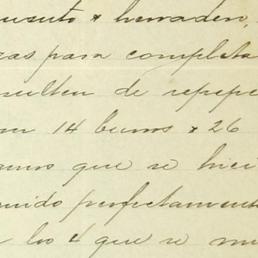 y herraden,
ras para completa
sulten de repepe
14 buenos y 26
amos que se hici
nido perfectamente
los 4 que se mu